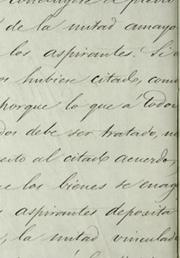 de la mitad amayo
los aspirantes. Si a
hubiese citado, como
porque lo que a todos
debe ser tratado, no
al citado acuerdo,
e los bienes se enag
aspirantes deposita
, la mitad vinculada